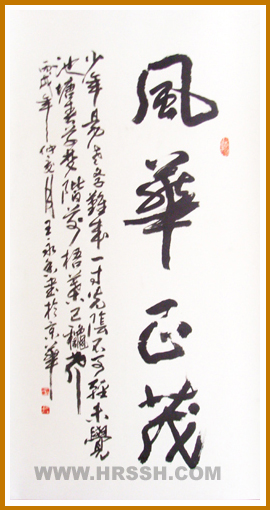 風華正茂
少年易老學難成一寸光陰不可輕未覺
池塘春草夢階前梧葉已穐声
丙戌年仲夏月王永書於京華
WWW.HRSSH.COM